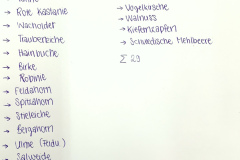 → Rote Kastanie
→ Wacholder
→ Traubeneiche
→ Hainbuche
→ Birke
→ Robinie
→ Feldahorn
→ Spitzahorn
→ Stieleiche
→ Bergahorn
→ Ulme (Feldu.)
→ Salweide
→ Vogelkirsche
→ Walnuss
→ Kiefernzapfen
→ Schwedische Mehlbeere
Σ 29